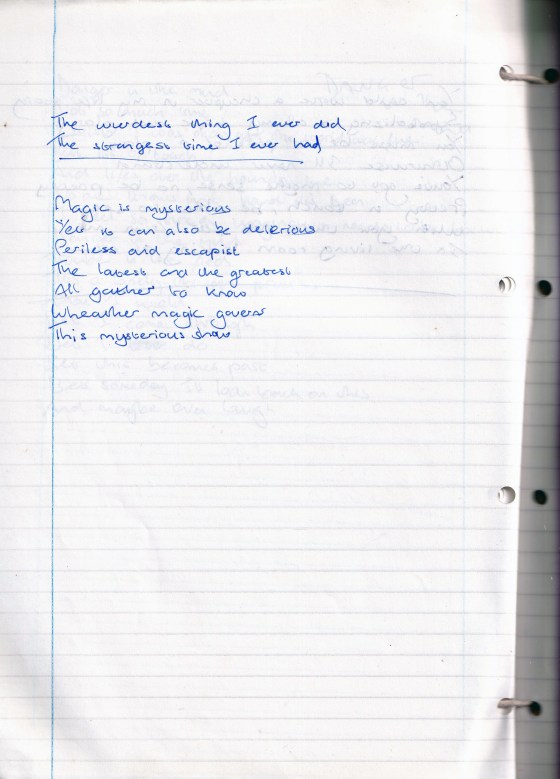 The wierdest thing I ever did
The strangest time I ever had
Magic is mysterious
Yet it can also be delerious
Periless and escapist
The latest and the greatest
All gather to know
Wheather magic governs
This mysterious show